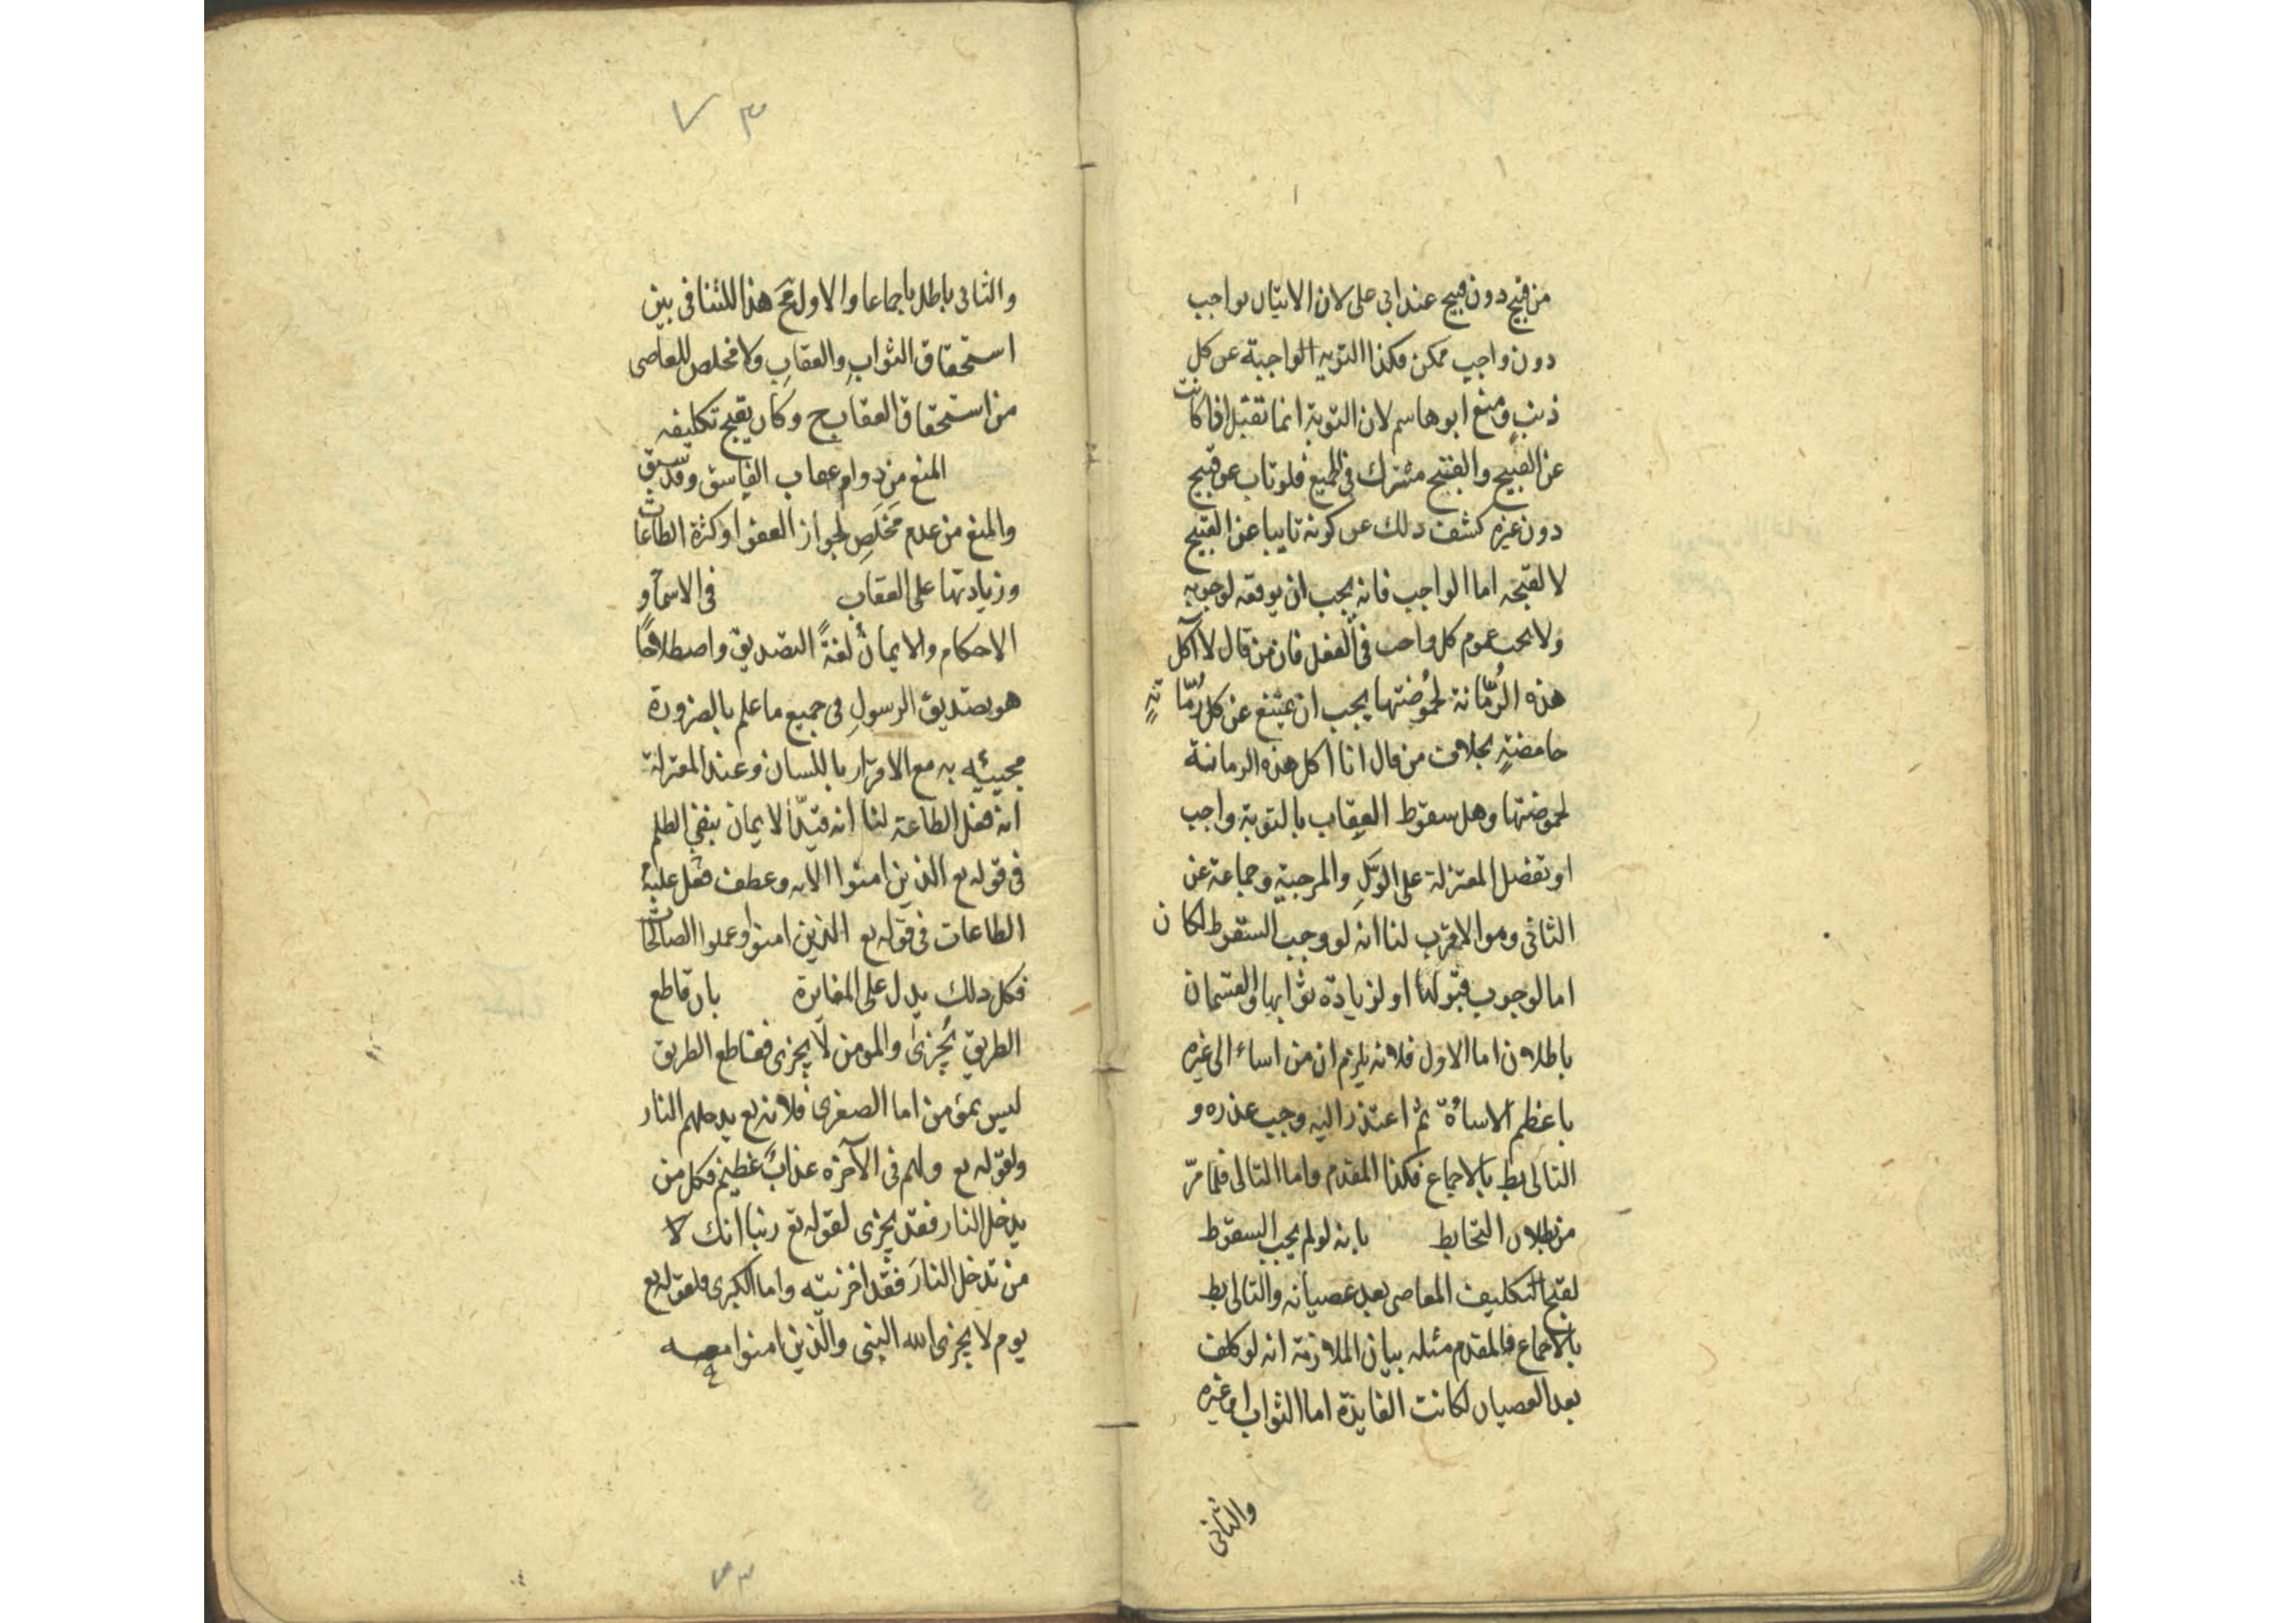 من قبيح دون قبيح عند ابى على لان الاتيان بواجب
دون واجب ممكن فكذا التوبه الواجبة عن كل
ذنب ومنع ابو هاشم لان التوبة انما تقبل اذا كانت
عن القبيح والقبيح مشترك فى الجميع فلو تاب عن قبيح
دون غيره كشف ذلك عن كونه تايبا عن القبيح
لا لقبحه اما الواجب فانه يجب ان يوقعه لوجوبه
ولا يجب عموم كل واجب فى الفعل فان من قال لا آكل
هذه الرُمّانة لحُموُضتها يجب ان يمتنع عن كل رُمّانةٍ
حامضةٍ بخلاف من قال انا اكل هذه الرمانة
لحموضتها وهل سقوط العقاب بالتوبة واجب
او تفضل المعتزلة على الاوّل والمرجية وجماعة عن
الثانى وهو الاقرب لنا انه لو وجب السقوط لكان
اما لوجوب قبولها او لزيادة ثوابها والقسمان
باطلان اما الاول فلانه يلزم ان من اساء الى غيره
باعظم الاساءة ثم اعتذر اليه وجب عذره و
التالى بط بالاجماع فكذا المقدم واما التالى فلما مرّ
من بطلان التحابط بانه لو لم يجب السقوط
لقبح التكليف المعاصى بعد عصيانه والتالى بط
بالاجماع فالمقدم مثله بيان الملازمة انه لو كلف
بعد العصيان لكانت الفايدة اما الثواب او غيره
والثانى
٧٣
والثانى باطل باجماعا والاول مح هذا للتنافى بين
استحقاق الثوابِ والعقابِ ولا مخلص للعاصى
من استحقاق العقاب ح وكان يقبح تكليفه
المنع من دوام عقاب الفاسق وقد سبق
والمنع من عدم مَخلَصِ لجواز العفو او كثرة الطاعات
وزيادتها على العقاب فى الاسماء و
الاحكام والايمان لغةً التصديق واصطلاحًا
هو تصديق الرسولِ فى جميع ما علم بالضرورة
مجيئه به مع الاقرار باللسان وعند المعتزلة
انه فعل الطاعة لنا انه قيّد الايمان بنفى الظلم
فى قوله تع الذين امنوا الايه وعطف فعل عليه
الطاعات فى قوله تع الذين امنوا وعملوا الصالحات
فكل ذلك يدل على المغايرة بان قاطع
الطريق يُخزىٰ والمومن لا يخزى فقاطع الطريق
ليس بمؤمن اما الصغرى فلانه تع يدخلهم النار
ولقوله تع ولهم فى الآخره عذابٌ عظيم فكل من
يدخل النار فقد يخزى لقوله تع ربنا انك لا
من تدخل النارَ فقد اخزيته واما الكبرى فلقوله تع
يوم لا يخزى الله النبى والّذين امنوا معه
٧٣